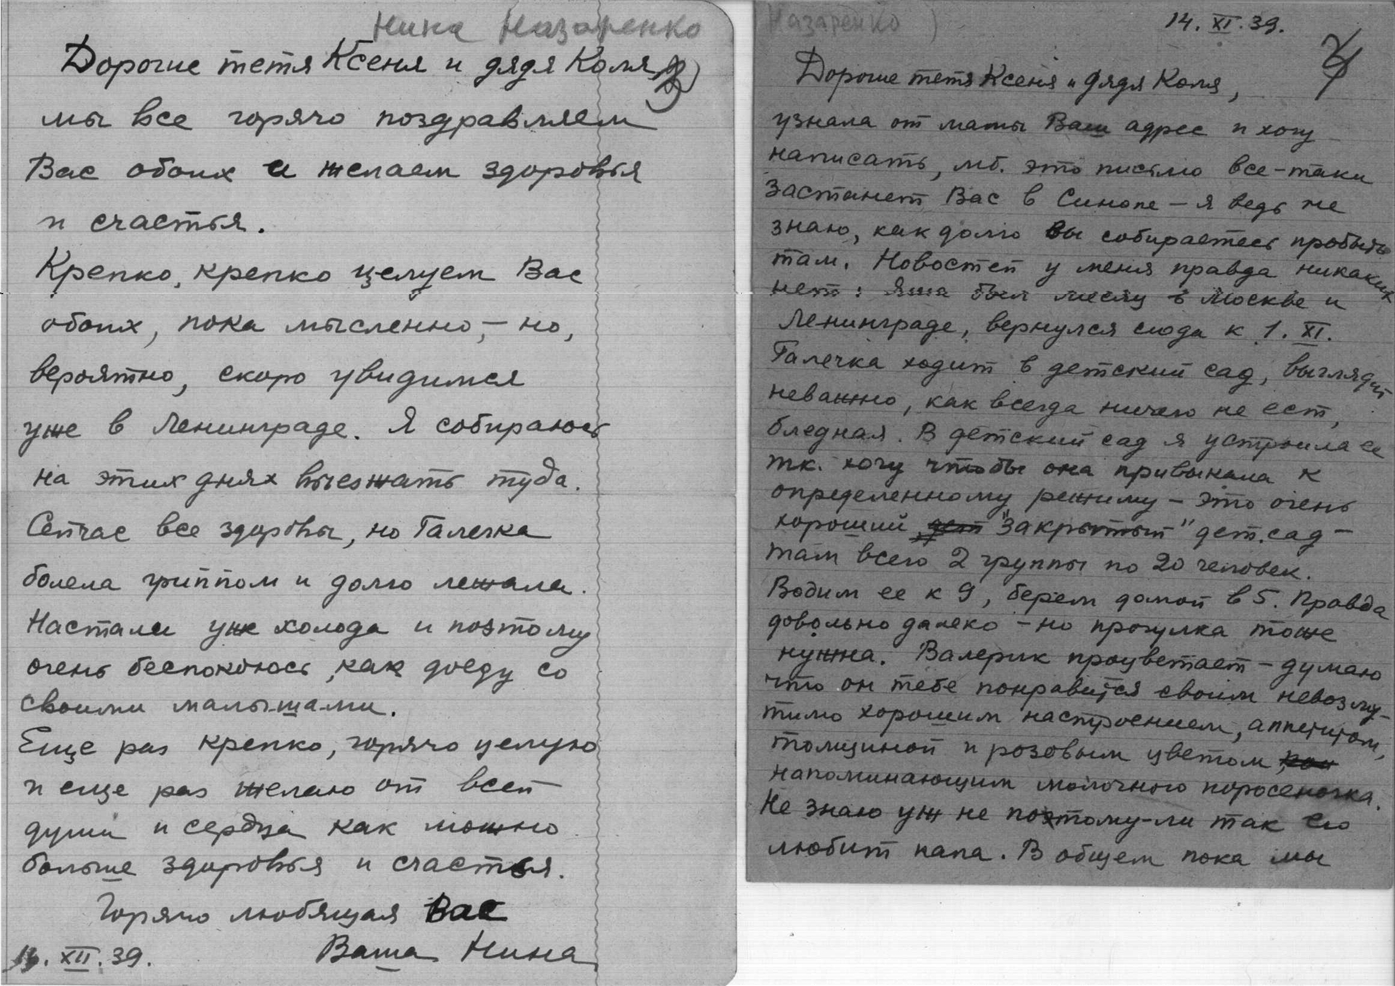 Нина Назаренко
Дорогие тетя Ксеня и дядя Коля
мы все горячо поздравляем
Вас обоих и желаем здоровья
и счастья.
Крепко, крепко целуем Вас
обоих, пока мысленно, – но,
вероятно, скоро увидимся
уже в Ленинграде. Я собираюсь
на этих днях выезжать туда.
Сейчас все здоровы, но Галечка
болела гриппом и долго лежала.
Настали уже холода и поэтому
очень беспокоюсь, как доеду со
своими малышами.
Еще раз крепко, горячо целую
и еще раз желаю от всей
души и сердца как можно
больше здоровья и счастья.
Горячо любящая Вас
Ваша Нина
XII. 39.
Назаренко )
14. XI. 39.
Дорогие тетя Ксеня и дядя Коля,
узнала от мамы Ваш адрес и хочу
написать, мб. это письмо все-таки
застанет Вас в Синопе – я ведь не
знаю, как долго вы собираетесь пробыть
там. Новостей у меня правда никаких
нет: Яша был месяц в Москве и
Ленинграде, вернулся сюда к 1. XI.
Галечка ходит в детский сад, выглядит
неважно, как всегда ничего не ест,
бледная. В детский сад я устроила ее
тк. хочу чтобы она привыкала к
определенному режиму – это очень
хороший, дет "закрытый" дет. сад –
там всего 2 группы по 20 человек.
Водим ее к 9, берем домой в 5. Правда
довольно далеко – но прогулка тоже
нужна. Валерик процветает – думаю
что он тебе понравится своим невозму-
тимо хорошим настроением, аппетитом,
толщиной и розовым цветом,
напоминающим молочного поросеночка.
Не знаю уж не поэтому-ли так его
любит папа. В общем пока мы